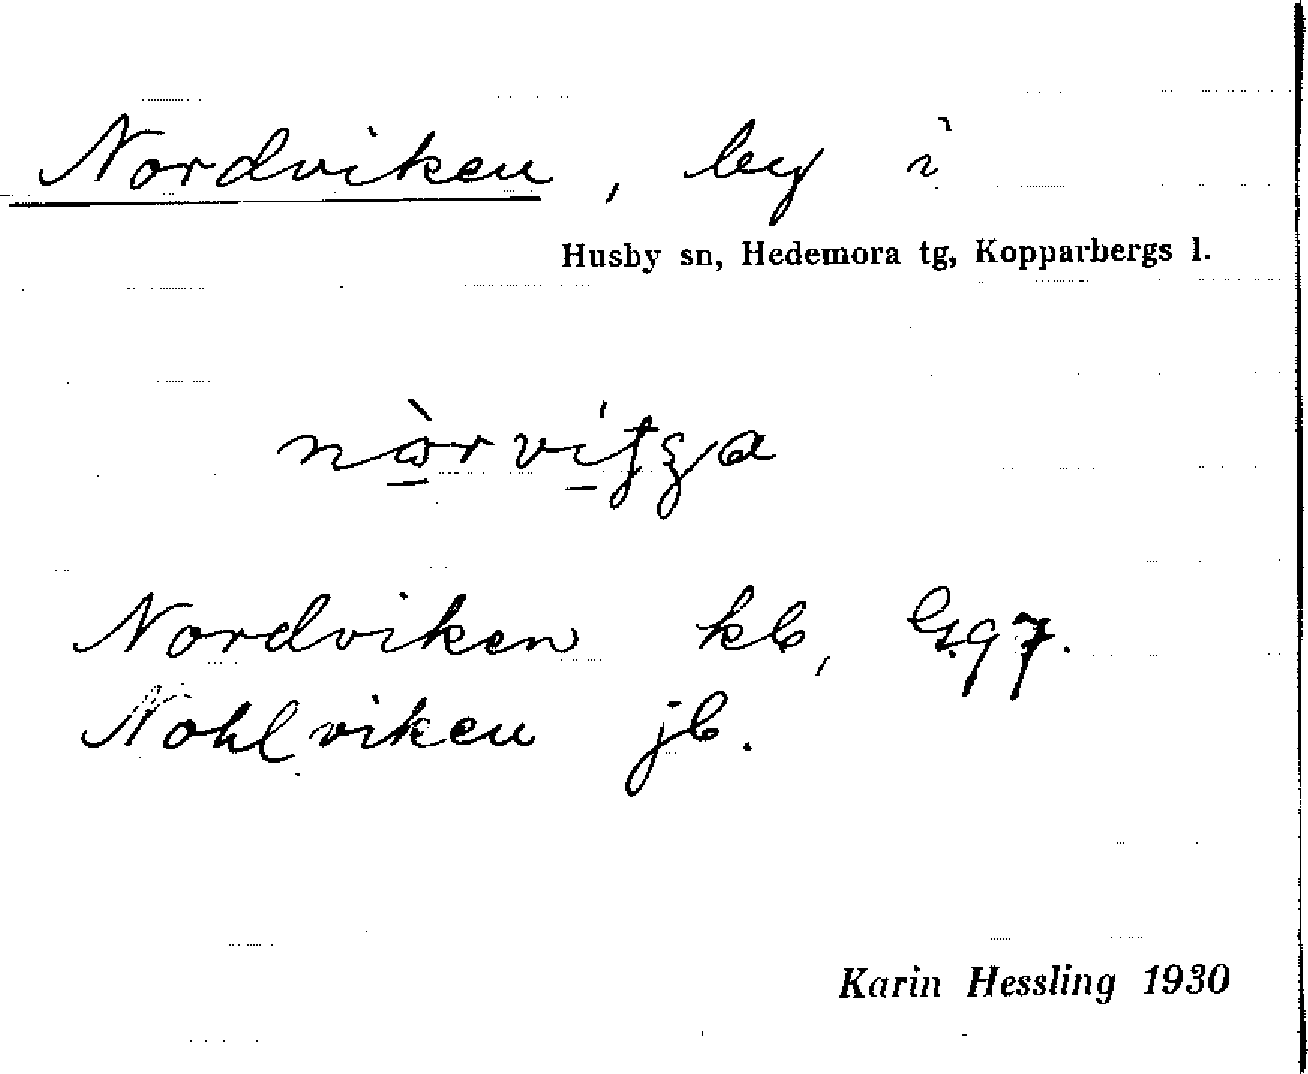 Nordviken, by i
Husby sn, Hedemora tg, Kopparbergs l.
Nordviken kb, G.97.
Nohlviken jb.
Karin Hessling 1930